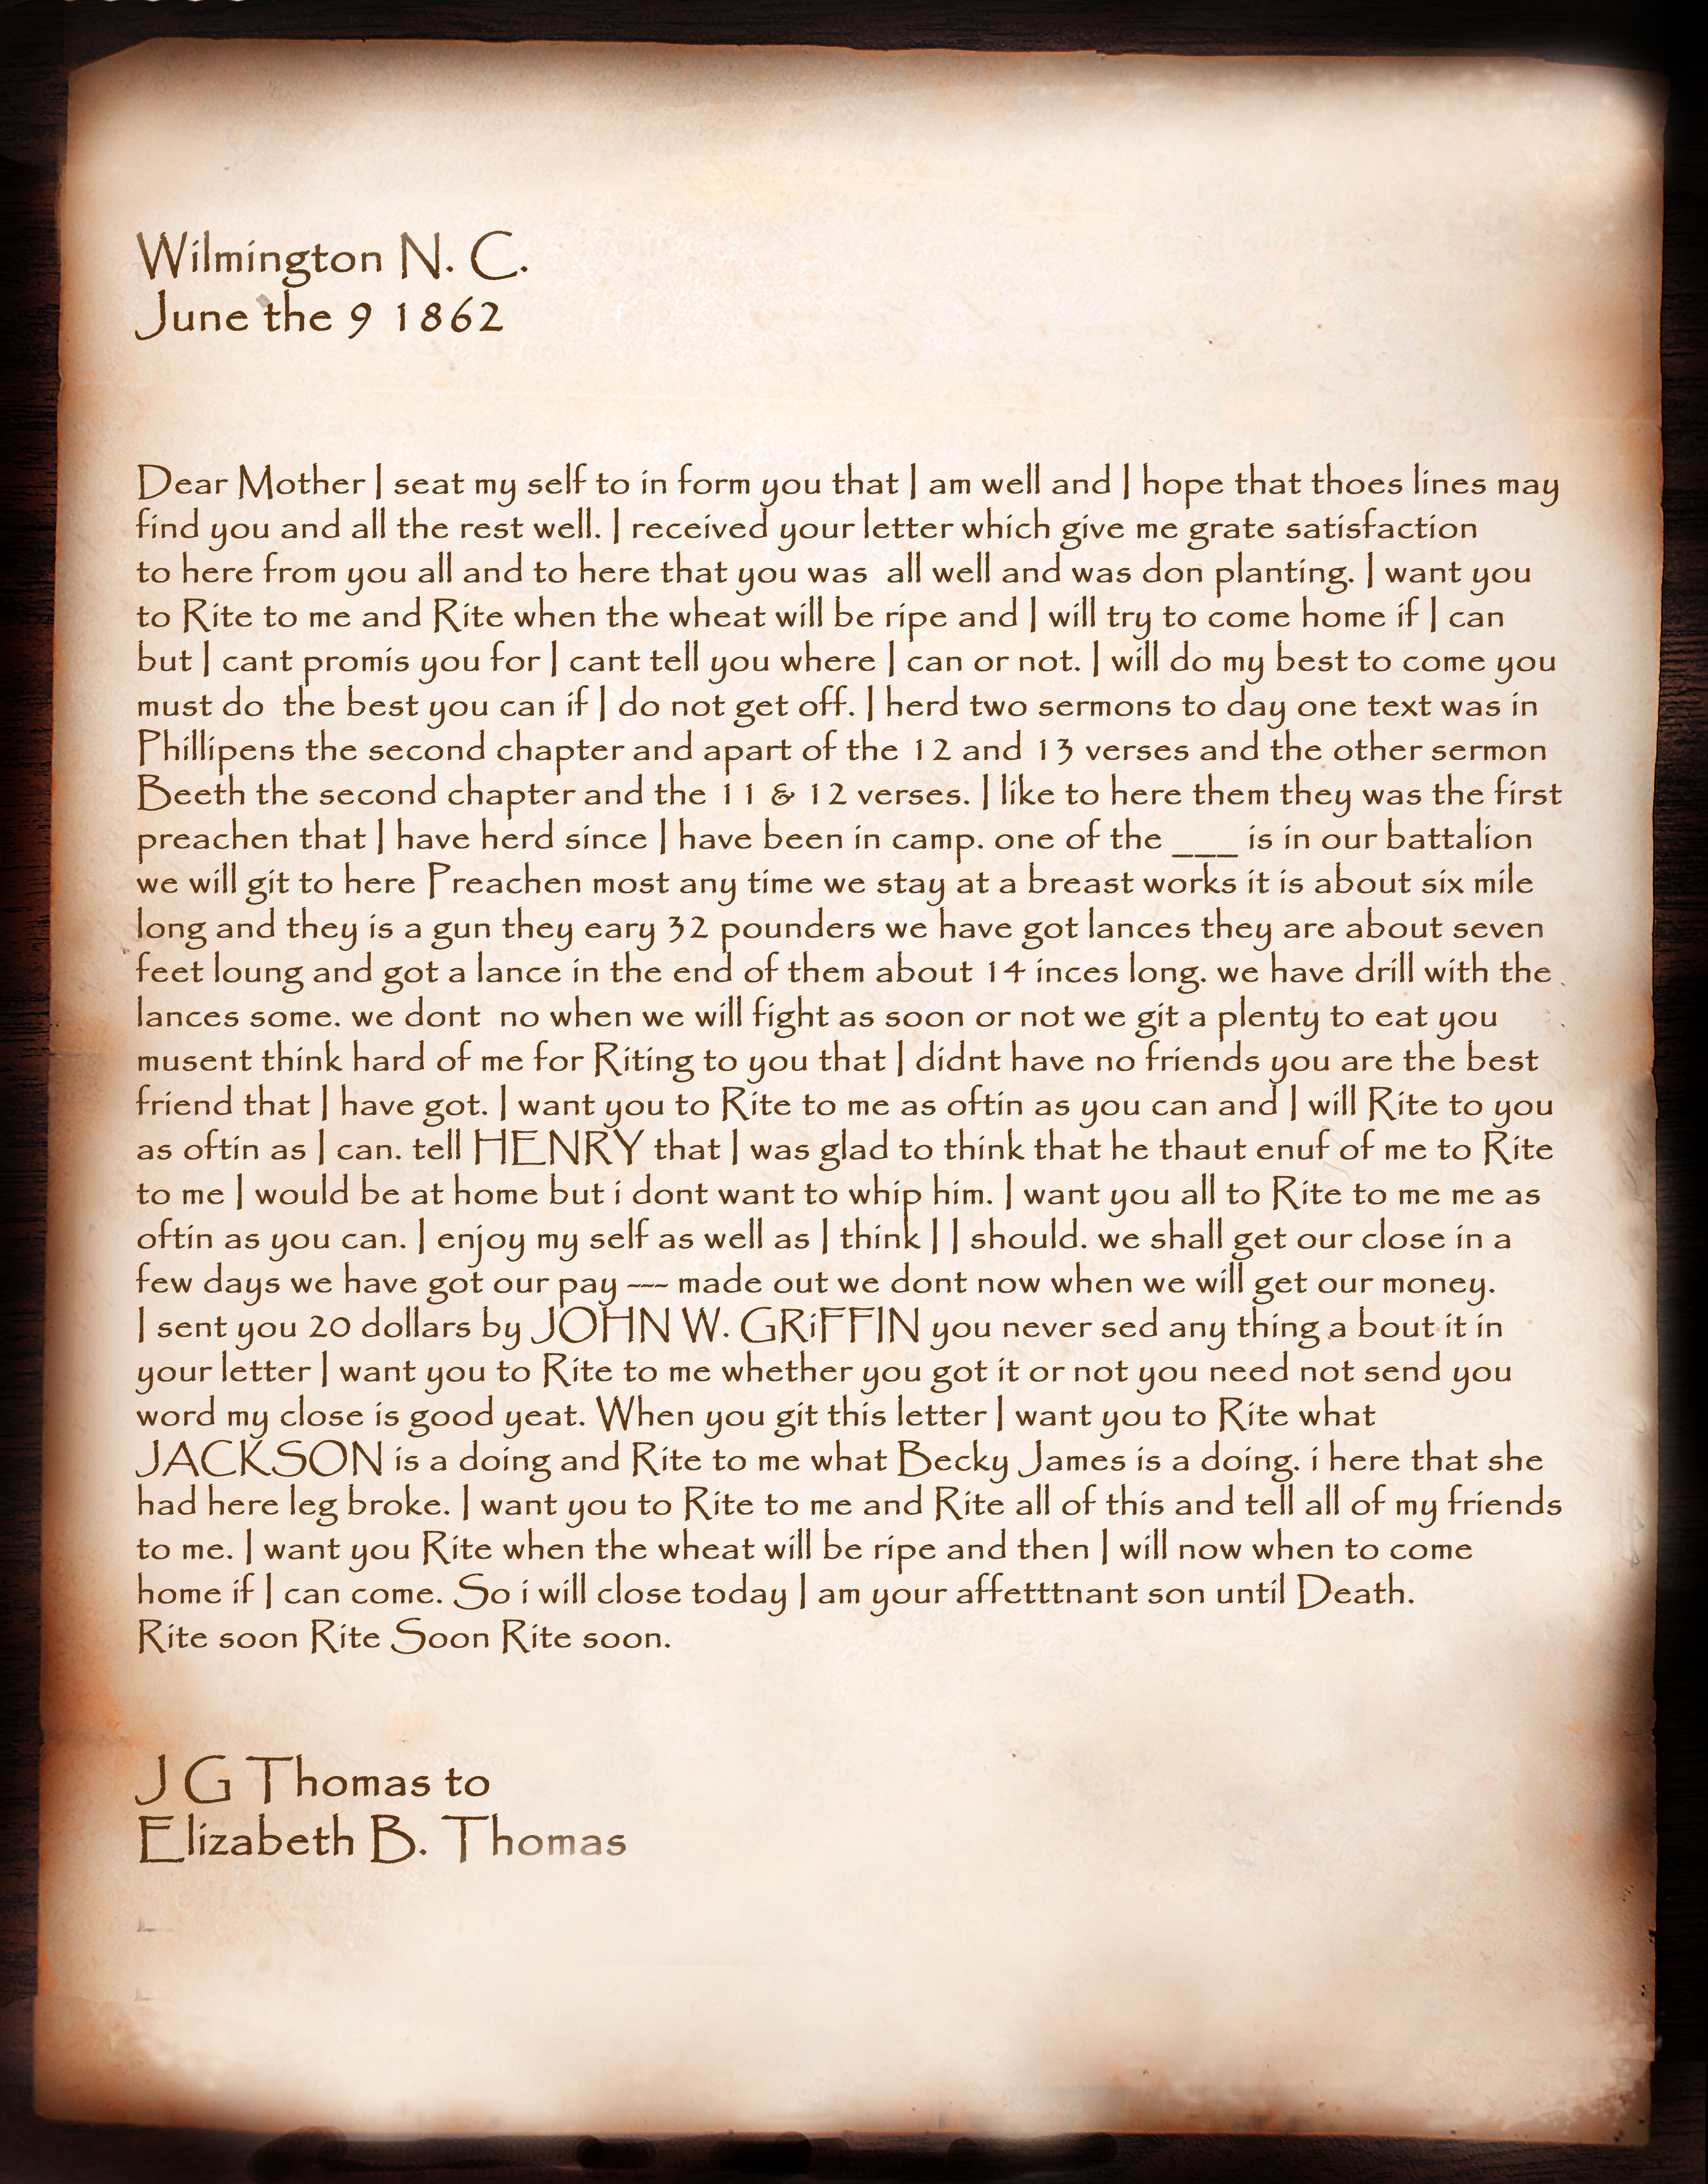 Wilmington N. C.
June the 9 1862
Dear Mother I seat my self to in form you that I am well and I hope that thoes lines may
find you and all the rest well. I received your letter which give me grate satisfaction
to here from you all and to here that you was all well and was don planting. I want you
to Rite to me and Rite when the wheat will be ripe and I will try to come home if I can
but I cant promis you for I cant tell you where I can or not. I will do my best to come you
must do the best you can if I do not get off. I herd two sermons to day one text was in
Phillipens the second chapter and apart of the 12 and 13 verses and the other sermon
Beeth the second chapter and the 11 & 12 verses. I like to here them they was the first
preachen that I have herd since I have been in camp. one of the ___ is in our battalion
we will git to here Preachen most any time we stay at a breast works it is about six mile
long and they is a gun they eary 32 pounders we have got lances they are about seven
feet loung and got a lance in the end of them about 14 inces long. we have drill with the
lances some. we dont no when we will fight as soon or not we git a plenty to eat you
musent think hard of me for Riting to you that I didnt have no friends you are the best
friend that I have got. I want you to Rite to me as oftin as you can and I will Rite to you
as oftin as I can. tell HENRY that I was glad to think that he thaut enuf of me to Rite
to me I would be at home but i dont want to whip him. I want you all to Rite to me me as
oftin as you can. I enjoy my self as well as I think I I should. we shall get our close in a
few days we have got our pay --- made out we dont now when we will get our money.
I sent you 20 dollars by JOHN W. GRiFFIN you never sed any thing a bout it in
your letter I want you to Rite to me whether you got it or not you need not send you
word my close is good yeat. When you git this letter I want you to Rite what
JACKSON is a doing and Rite to me what Becky James is a doing. i here that she
had here leg broke. I want you to Rite to me and Rite all of this and tell all of my friends
to me. I want you Rite when the wheat will be ripe and then I will now when to come
home if I can come. So i will close today I am your affetttnant son until Death.
Rite soon Rite Soon Rite soon.
J G Thomas to
Elizabeth B. Thomas